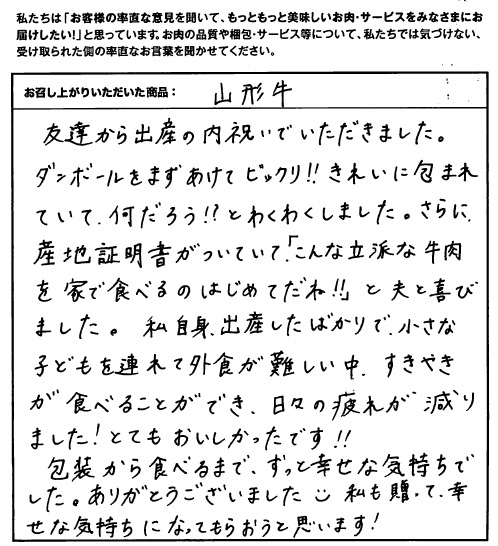 私たちは「お客様の率直な意見を聞いて、もっともっと美味しいお肉・サービスをみなさまにお
届けしたい!」と思っています。お肉の品質や梱包・サービス等について、私たちでは気づけない、
受け取られた側の率直なお言葉を聞かせてください。
お召し上がりいただいた商品： 山形牛
友達から出産の内祝いでいただきました。
ダンボールをまずあけてビックリ!!きれいに包まれ
ていて、何だろう!?とわくわくしました。さらに、
産地証明書がついていて、「こんな立派な牛肉
を家で食べるのはじめてだね!!」と夫と喜び
ました。私自身、出産したばかりで、小さな
子どもを連れて外食が難しい中、すきやき
が食べることができ、日々の疲れが減り
ました!とてもおいしかったです!!
包装から食べるまで、ずっと幸せな気持ちで
した。ありがとうございました 私も贈って、幸
せな気持ちになってもらおうと思います!